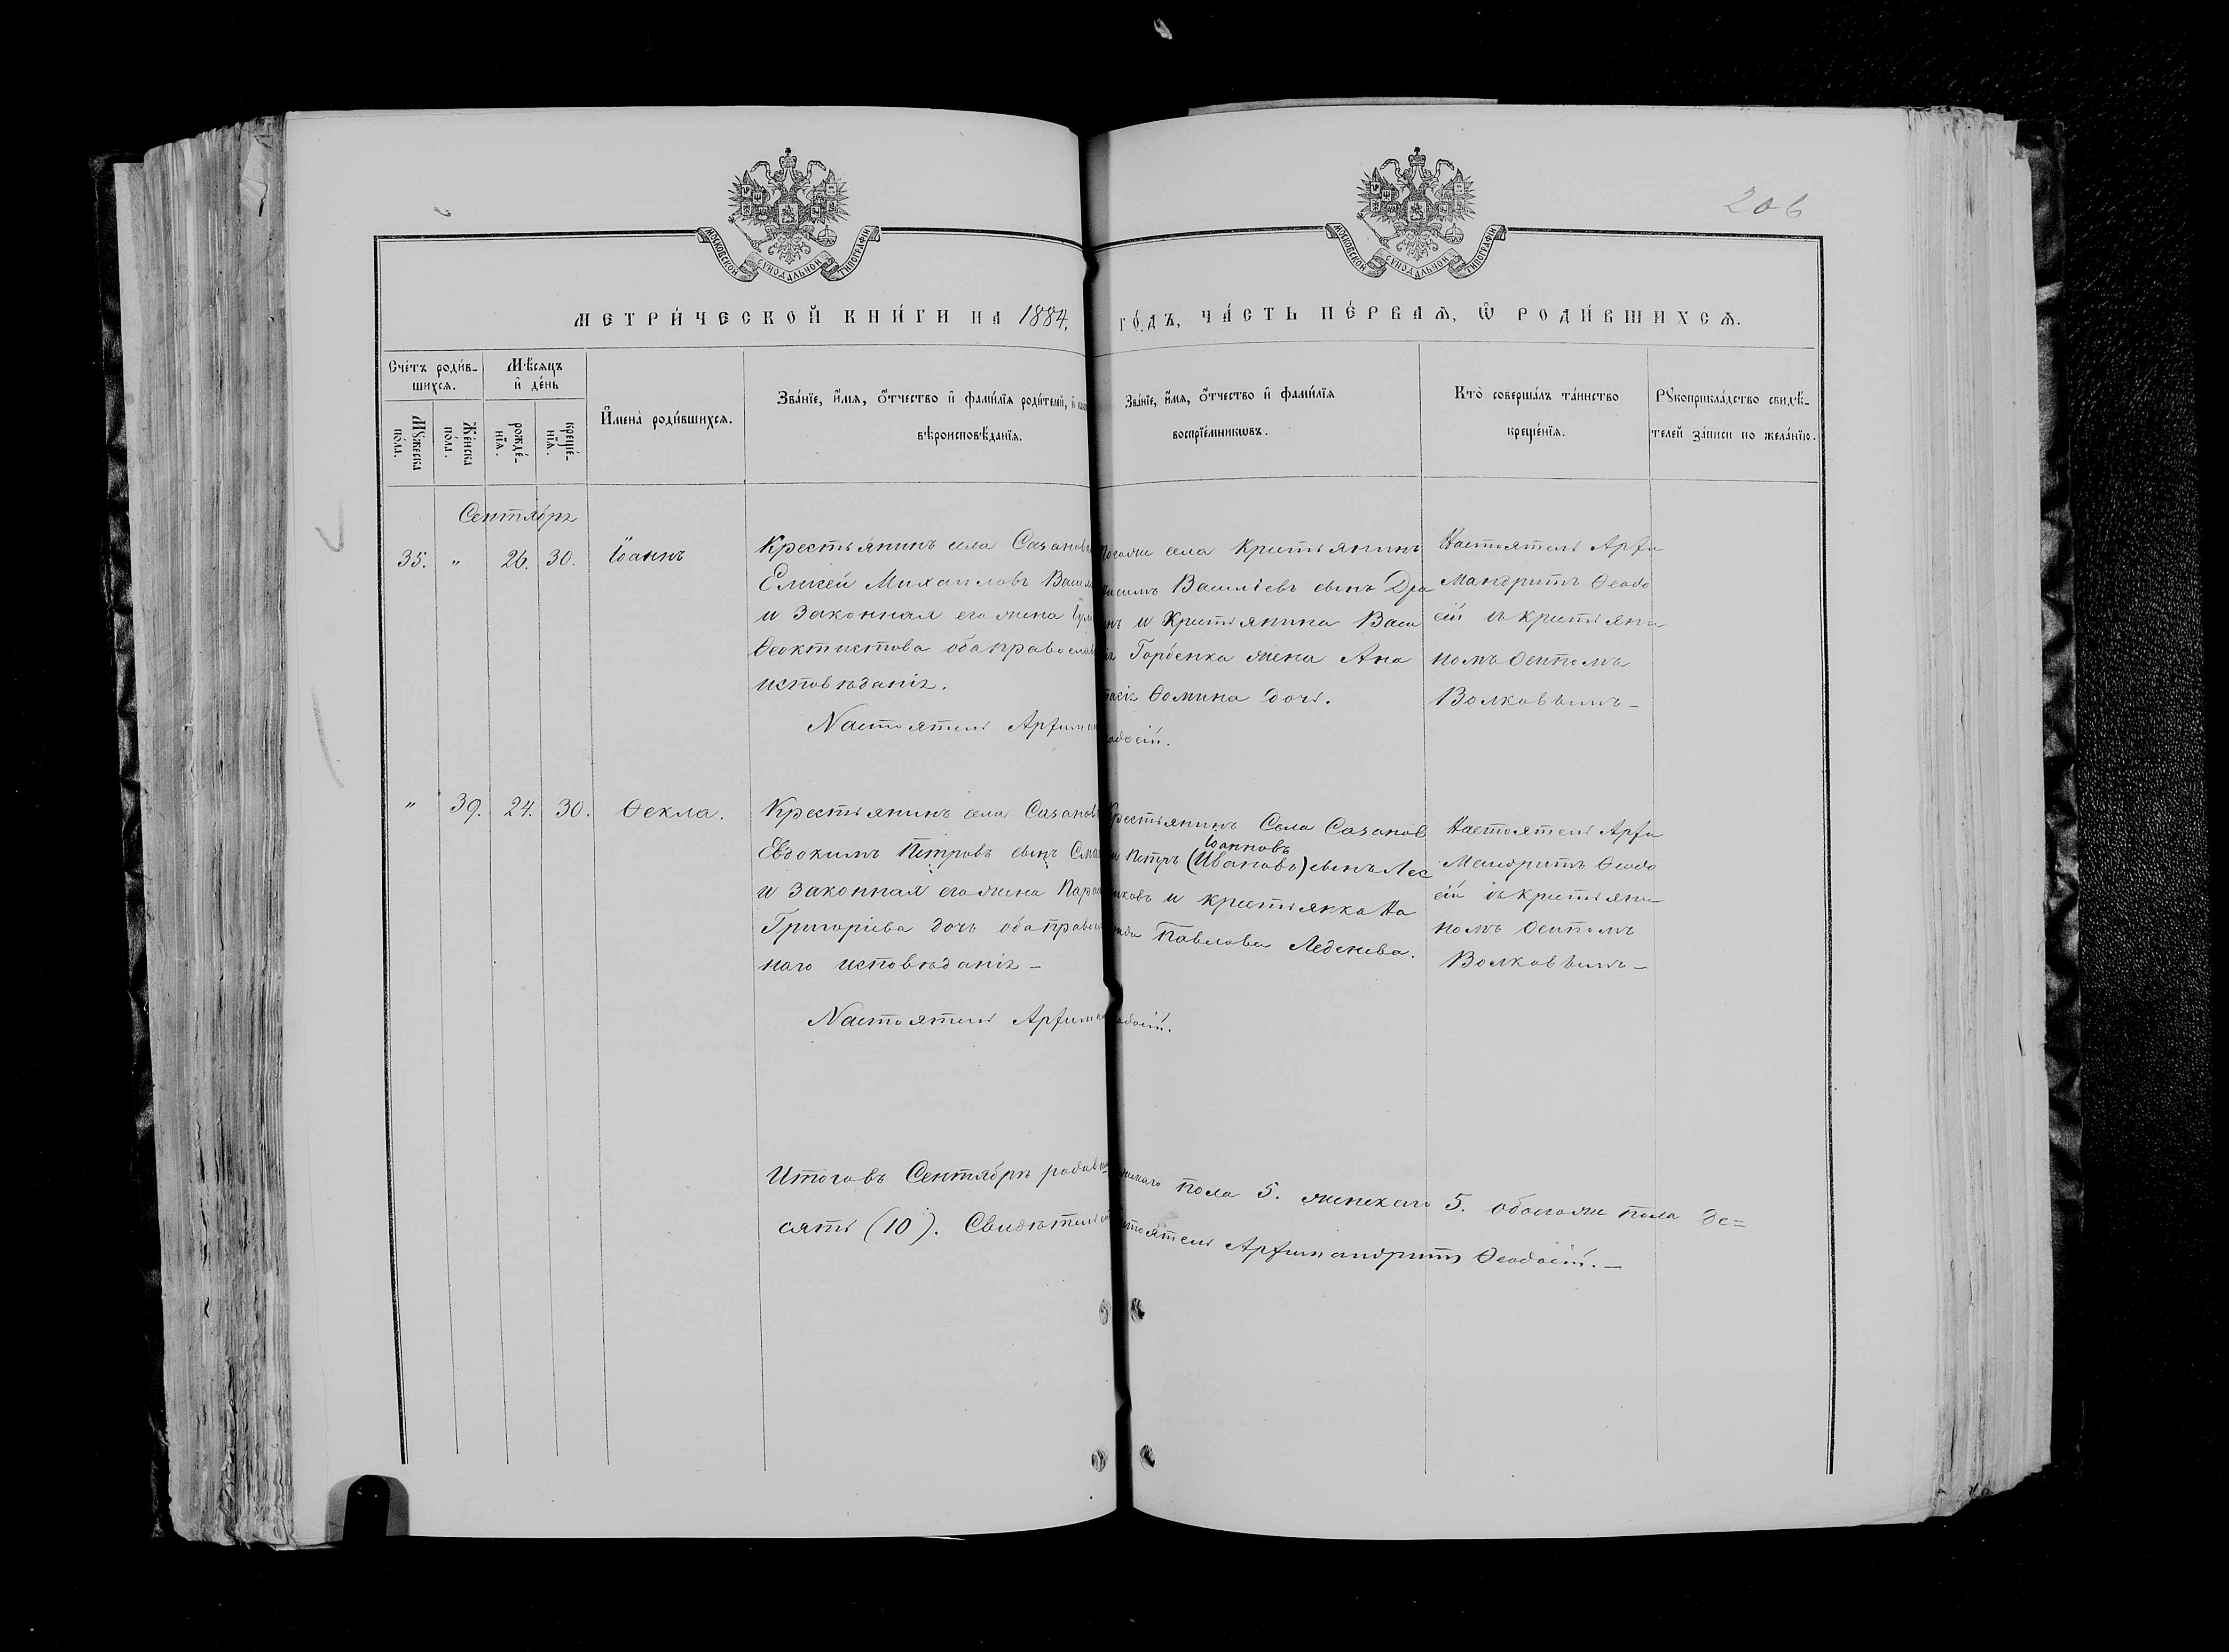 206
МОСКОВСКОЙ СѴНОДАЛЬНОЙ ТИПОГРАФІИ
МОСКОВСКОЙ СѴНОДАЛЬНОЙ ТИПОГРАФІИ
МЕТРИ́ЧЕСКОЙ КНИ́ГИ НА 1884.
ГО́ДЪ, ЧА́СТЬ ПЕ́РВАѦ, Ѡ РОДИ́ВШИХСѦ.
Сче́тъ роди́в-
шихсѧ.
Мѣ́сяцъ
и҆ де́нь
Мꙋ́жеска по́ла.
Же́нска по́ла.
рожде́-
нїѧ.
креще́-
нїѧ.
И҆мена̀ роди́вшихсѧ.
Зва́нїе, и҆́мѧ, ѻ҆́тчество и҆ фами́лїѧ роди́телей, и҆
вѣроисповѣ́данїѧ.
Зва́нїе, и҆́мѧ, ѻ҆́тчество и҆ фами́лїѧ
воспрїе́мникѡвъ.
Кто̀ соверша́лъ та́инство
креще́нїѧ.
Рꙋкоприкла́дство свидѣ́-
телей за́писи по жела́нїю.
Сентябрь
35. " 26. 30. Іоаннъ
Крестьянинъ села Сазановк
Елисей Михаиловъ Васил
и законная его жена Іул
Ѳеоктистова оба православ
исповѣданія.
Настоятель Архиман
тогоже села Крестьянинъ
Василіевъ сынъ Дра
нъ и Крестьянина Васи
Горбенка жена Ана
тасія Ѳомина дочь.
одосій.
Настоятель Архи
мандритъ Ѳеодо
сій съ крестьяни
номъ Осипомъ
Волковымъ –
" 39. 24. 30. Ѳекла.
Крестьянинъ села Сазанов
Евдокимъ Петровъ сынъ Сма
и законная его жена Пара
Григоріева дочь оба правосла
наго исповѣданія –
Настоятель Архиман
Крестьянинъ Села Сазанов
Іоанновъ
и Петръ (Ивановъ) сынъ Лес
никовъ и крестьянка На
Павлова Леденева.
одосій.
Настоятель Архи
Мандритъ Ѳеодо
сій съ крестьяни
номъ Осипомъ
Волковымъ –
Итого въ Сентябрѣ родив
жескаго пола 5. женскаго 5. обоегоже пола де=
сять (10). Свидѣтельс
стоятель Архимандритъ Ѳеодосій. –